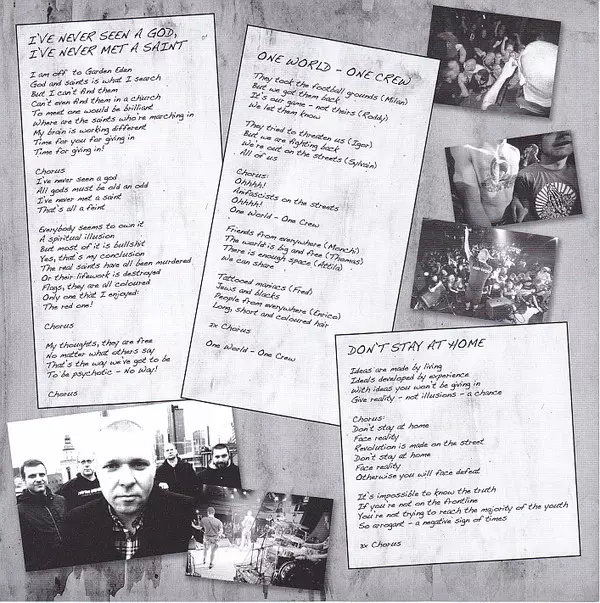 I'VE NEVER SEEN A GOD,
I'VE NEVER MET A SAINT
I am off to Garden Eden
God and saints is what I search
But I can't find them
Can't even find them in a church
To meet one would be brilliant
Where are the saints who're marching in
My brain is working different
Time for you for giving in
Time for giving in!
Chorus
I've never seen a god
All gods must be an odd
I've never met a saint
That's all a feint
Everybody seems to own it
A spiritual illusion
But most of it is bullshit
Yes, that's my conclusion
The real saints have all been murdered
Or their lifework is destroyed
Flags, they are all coloured
Only one that I enjoyed:
The red one!
Chorus
My thoughts, they are free
No matter what others say
That's the way we've got to be
To be psychotic - No Way!
Chorus
ONE WORLD - ONE CREW
They took the football grounds (Milan)
But we got them back
It's our game - not theirs (Roddy)
We let them know
They tried to threaten us (Igor)
But we are fighting back
We're out on the streets (Sylvain)
All of us
Chorus:
Ohhhh!
Anifascists on the streets
Ohhhh!
One World - One Crew
Friends from everywhere (Monchi)
The world is big and free (Thomas)
There is enough space (Attila)
We can share
Tattooed maniacs (Fred)
Jews and blacks
People from everywhere (Enrico)
Long, short and coloured hair
2x Chorus
One World - One Crew
DON'T STAY AT HOME
Ideas are made by living
Ideals developed by experience
With ideas you won't be giving in
Give reality - not illusions - a chance
Chorus:
Don't stay at home
Face reality
Revolution is made on the street
Don't stay at home
Face reality
Otherwise you will face defeat
It's impossible to know the truth
If you're not on the frontline
You're not trying to reach the majority of the youth
So arrogant - a negative sign of times
3x Chorus